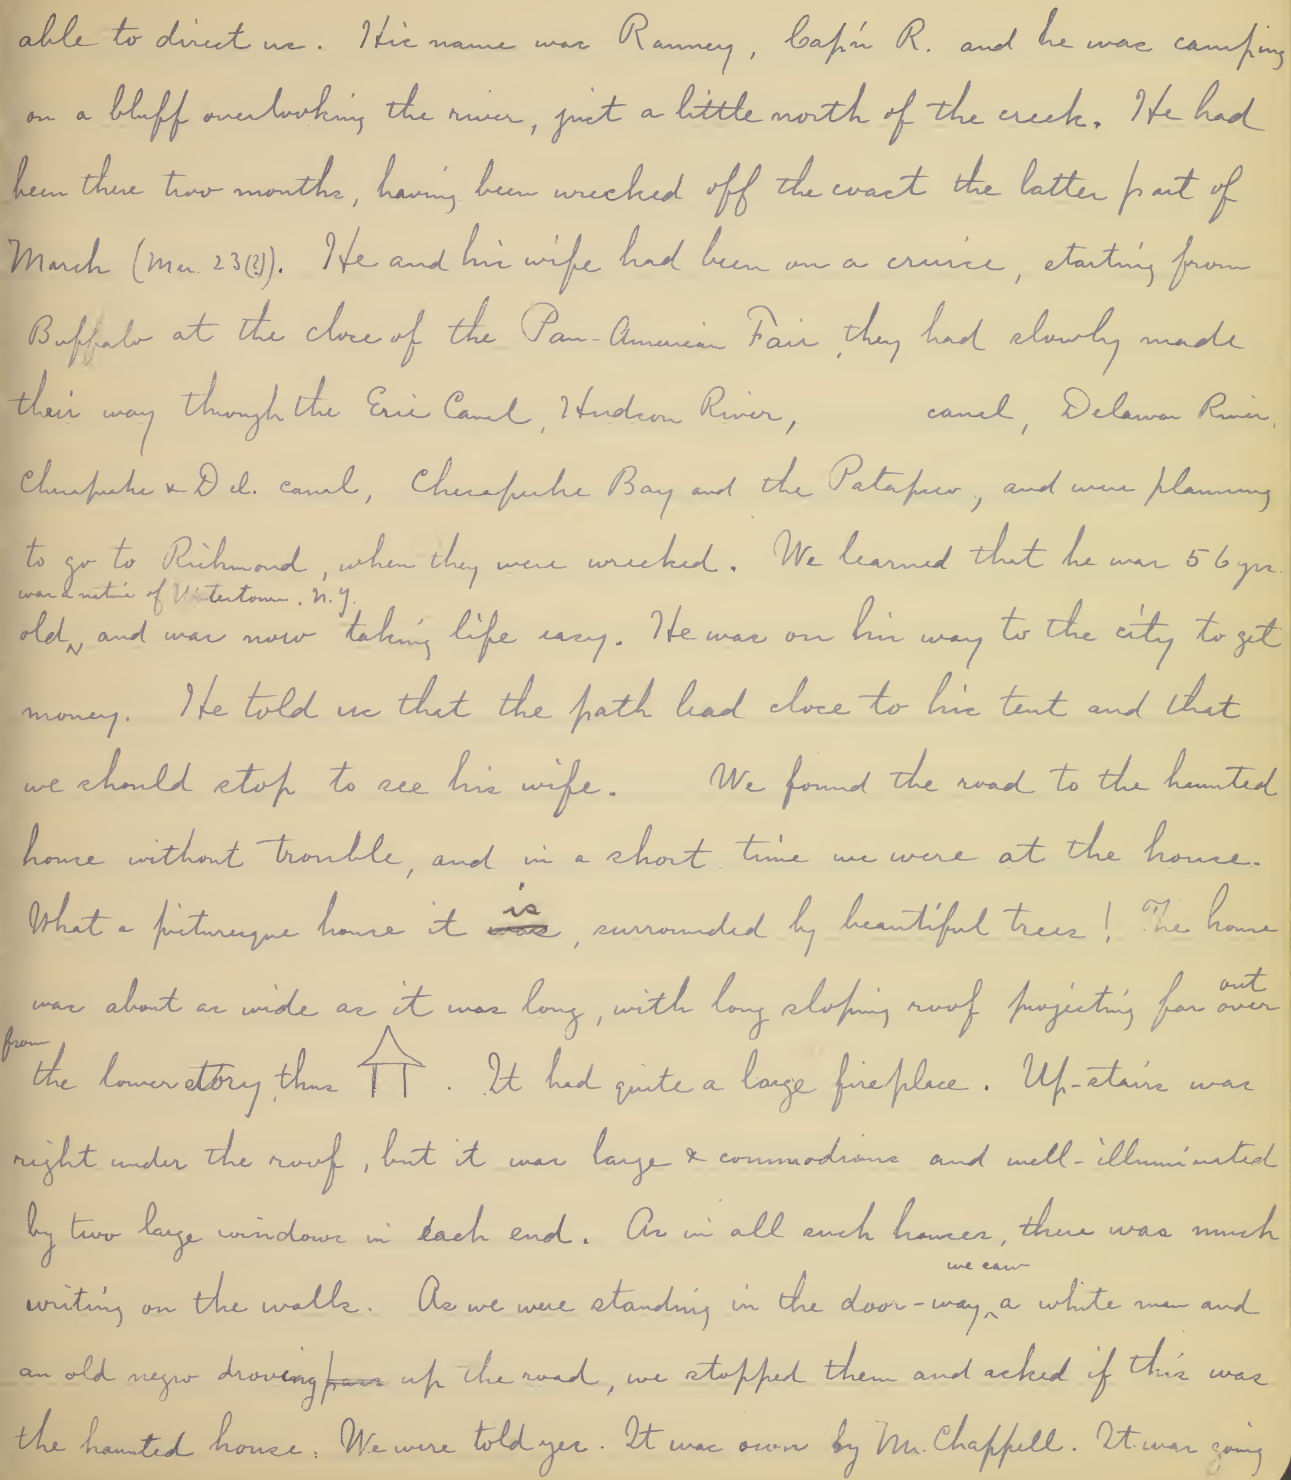 able to direct us. His name was Ranney, Cap'n R. and he was camping
on a bluff overlooking the river, just a little north of the creek. He had
been there two months, having been wrecked off the coast the latter part of
March (Mar. 23(?)). He and his wife had been on a cruise, starting from
Buffalo at the close of the Pan-American Fair, they had slowly made
their way through the Erie Canal, Hudson River, canal, Delawar River,
Chesapeake & Del. canal, Chesapeake Bay and the Patapsco, and were planning
to go to Richmond, when they were wrecked. We learned that he was 56 yrs.
was a native of Watertown, N.Y.
old, and was now taking life easy. He was on his way to the city to get
money. He told us that the path lead close to his tent and that
we should stop to see his wife. We found the road to the haunted
house without trouble, and in a short time we were at the house.
is
What a picturesque house it was, surrounded by beautiful trees! The house
out
was about as wide as it was long, with long sloping roof projecting far over
from
the lower story, thus . It had quite a large fireplace. Up-stairs was
right under the roof, but it was large & commodious and well-illuminated
by two large windows in each end. As in all such houses, there was much
we saw
writing on the walls. As we were standing in the door-way, a white man and
an old negro droving pass up the road, we stopped them and asked if this was
the haunted house. We were told yes. It was own by Mr. Chappell. It was going